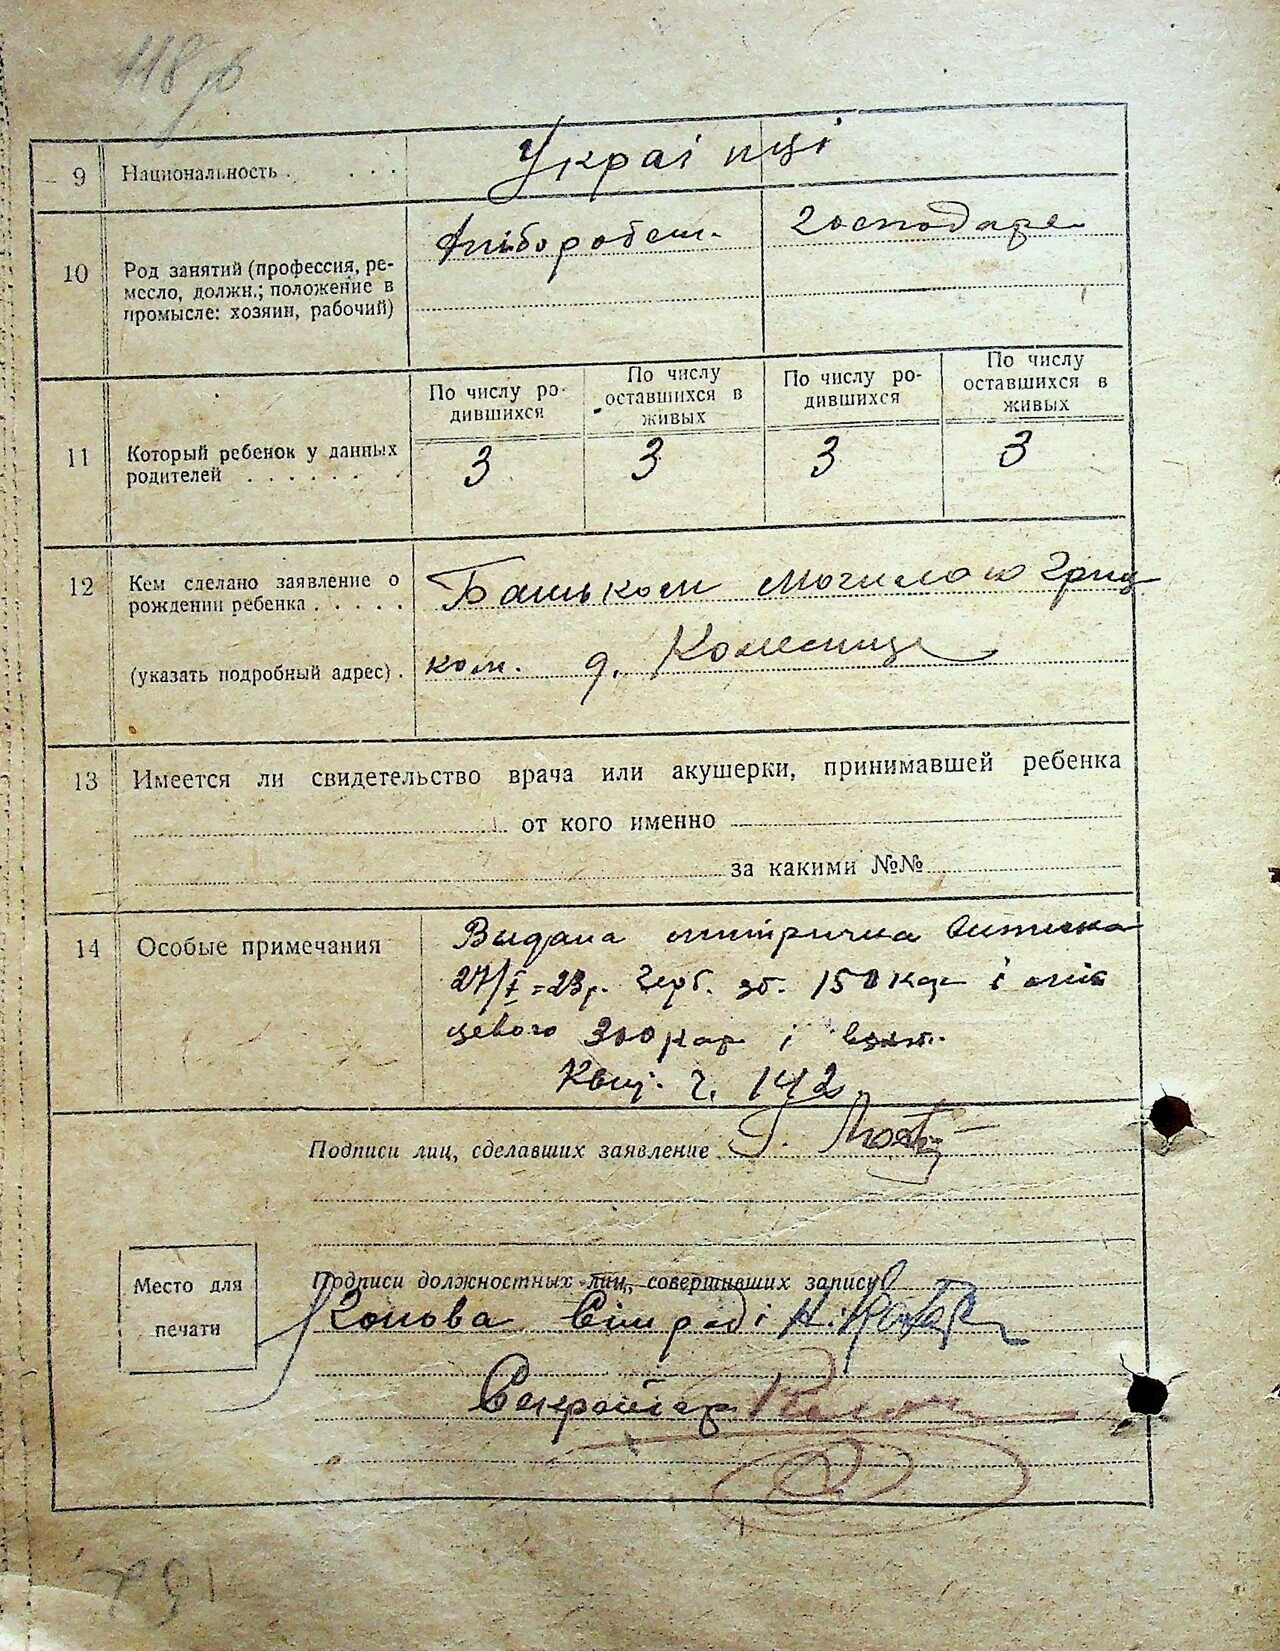 118 об
9 Национальность . . . . Украі нці
10 Род занятий (профессия, ре-
месло, должн.; положение в
промысле: хозяин, рабочий)
Хліборобст. господаре
11 Который ребенок у данных
родителей . . . . . . .
По числу ро-
дившихся
По числу
оставшихся в
живых
По числу ро-
дившихся
По числу
оставшихся в
живых
3 3 3 3
12 Кем сделано заявление о
рождении ребенка . . . . .
(указать подробный адрес) .
Батьком Могилою Гриц
ком. д.
13 Имеется ли свидетельство врача или акушерки, принимавшей ребенка
от кого именно
за какими №№
14 Особые примечания
Видана метрична виписка
27/X-23р. герб. зб. 150 кар і міс
цевого 300 кар і
Квит. ч. 142
Подписи лиц, сделавших заявление Г.
Подписи должностных лиц, совершивших запись
Голова Сільради Н.
Секретар
Место для
печати